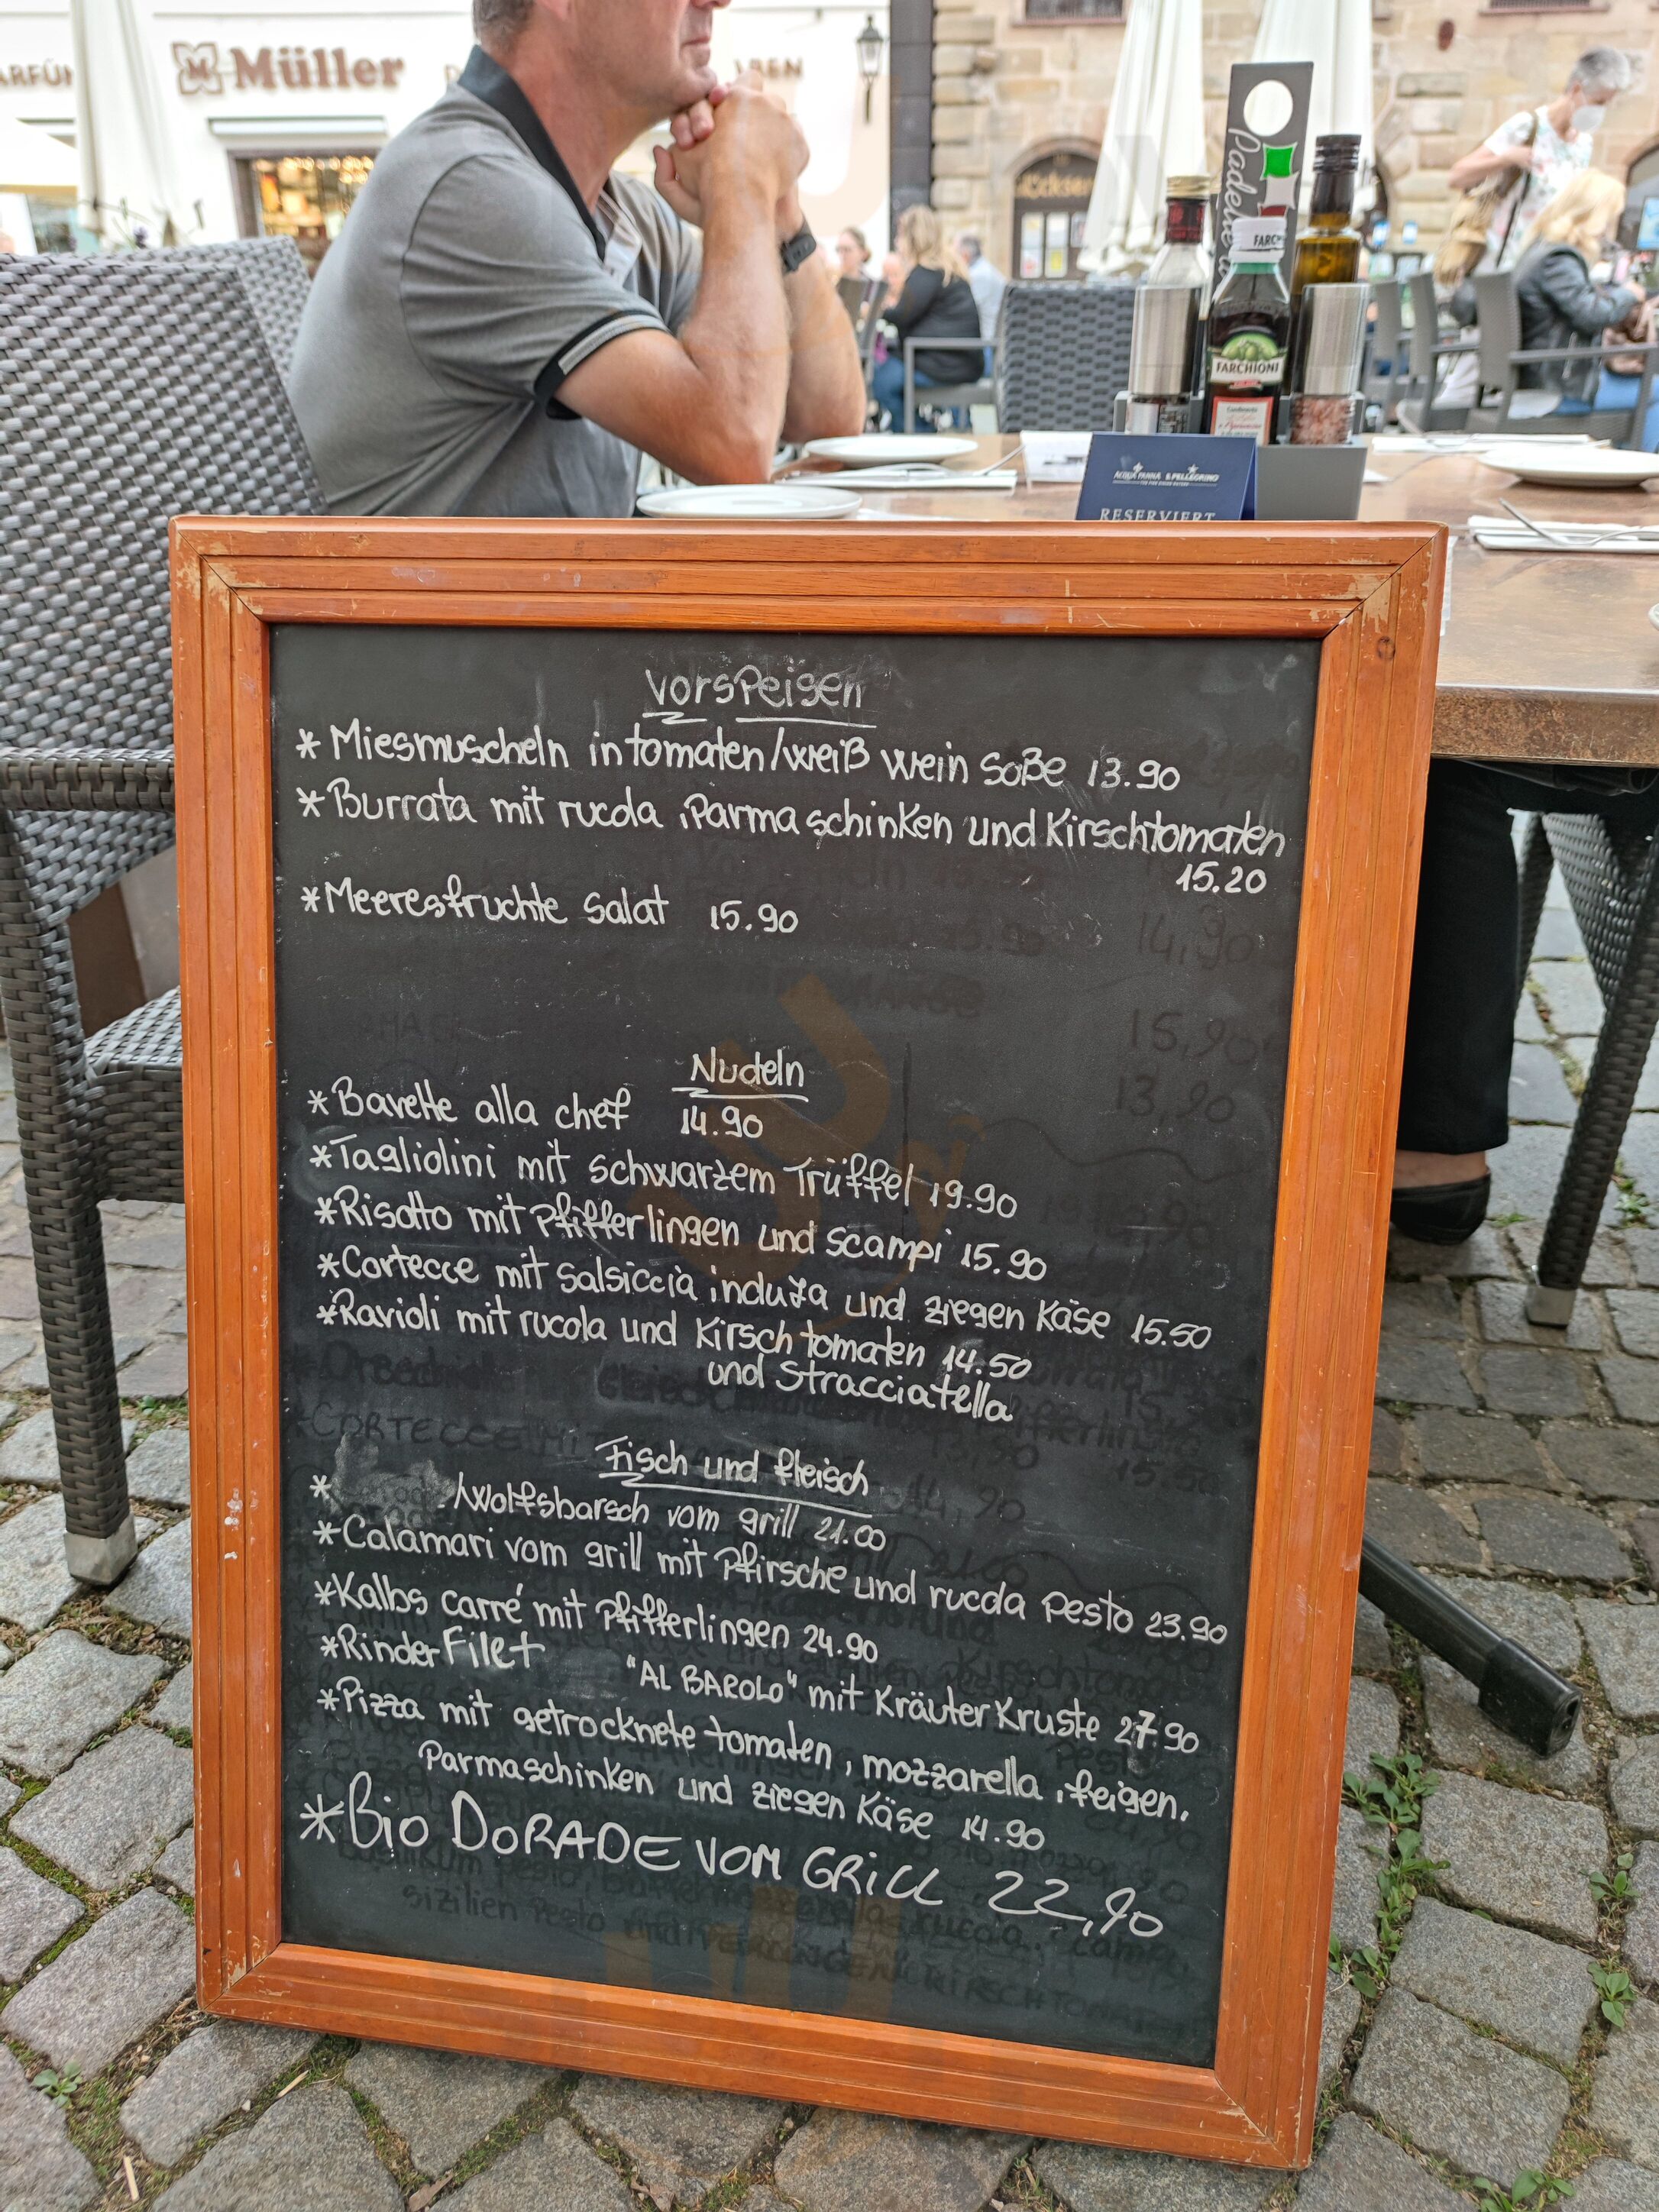 Müller
FARCHIONI
ACQUA PANNA S.PELLEGRINO
RESERVIERT
Vorspeisen
* Miesmuscheln in tomaten/weiß wein Soße 13.90
* Burrata mit rucola, Parma schinken und Kirschtomaten
15.20
* Meeresfruchte Salat 15.90
Nudeln
* Bavette alla chef 14.90
* Tagliolini mit schwarzem Trüffel 19.90
* Risotto mit Pfifferlingen und Scampi 15.90
* Cortecce mit Salsiccia induza und ziegen Käse 15.50
* Ravioli mit rucola und Kirsch tomaten 14.50
und Stracciatella
Fisch und fleisch
* /Wolfsbarsch vom grill 21.00
* Calamari vom grill mit Pfirsche und rucola Pesto 23.90
* Kalbs carré mit Pfifferlingen 24.90
* Rinder Filet "AL BAROLO" mit Kräuter Kruste 27.90
* Pizza mit getrocknete tomaten, mozzarella, feigen,
Parmaschinken und ziegen Käse 14.90
* Bio DORADE VOM GRILL 22,90